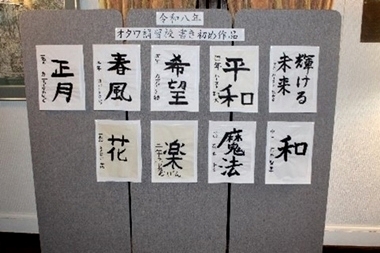 令和八年
オタワ補習校 書き初め作品
正月
春風
希望
平和
輝ける
未来
花
楽
魔法
和